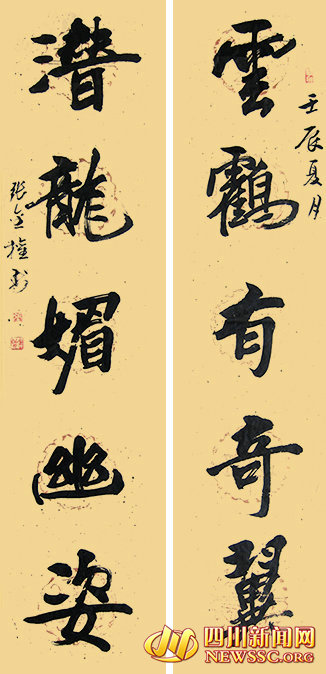 壬辰夏月
雲靏有奇翼
潛龍媚幽姿
四川新闻网
NEWSSC.ORG